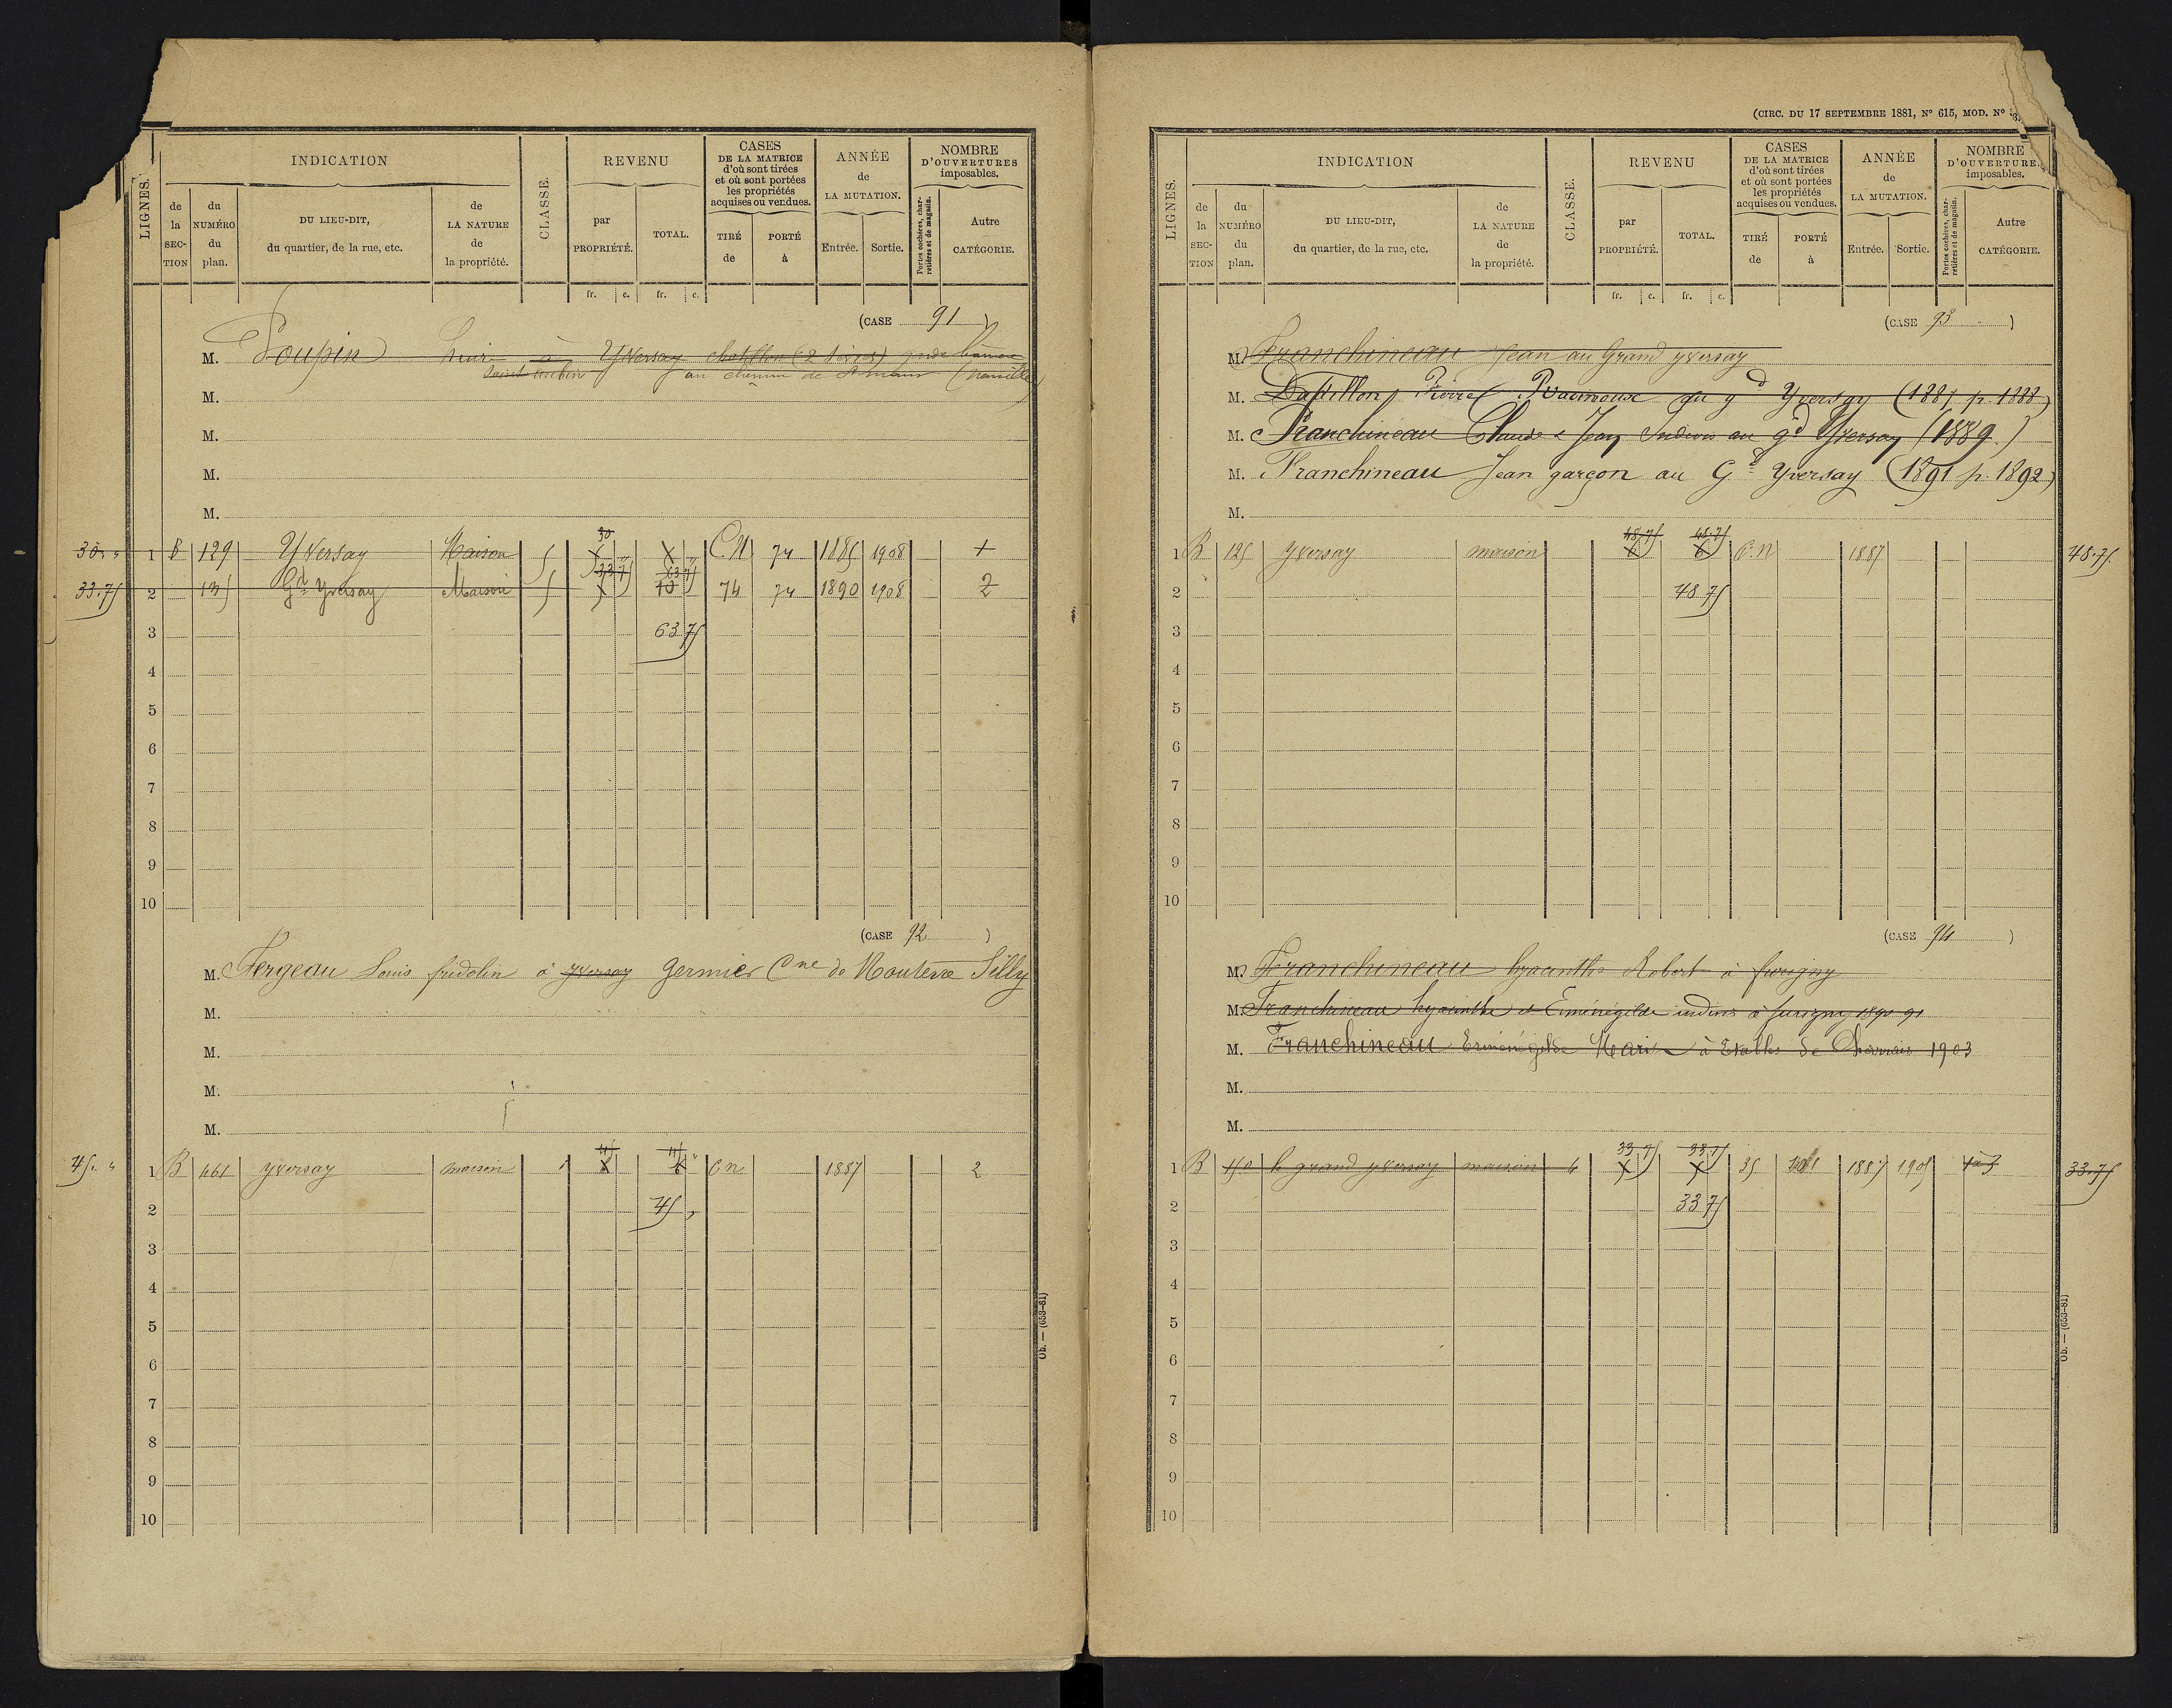 INDICATION
REVENU
CASES
DE LA MATRICE
d'où sont tirées
et où sont portées
les propriétés
acquises ou vendues.
ANNÉE
de
LA MUTATION.
NOMBRE
D'OUVERTURES
imposables.
LIGNES.
de
la
SEC-
TION
du
NUMÉRO
du
plan.
DU LIEU-DIT,
du quartier, de la rue, etc.
de
LA NATURE
de
la propriété.
CLASSE.
par
PROPRIÉTÉ.
TOTAL.
TIRÉ
de
PORTÉ
à
Entrée.
Sortie.
Portes cochères, char-
retières et de magasin.
Autre
CATÉGORIE.
fr. c. fr. c.
(CASE 91)
M. Poupin à Yversay
au chemin de
M.
M.
M.
M.
30 " 1 B 129 Yversay Maison 5 30 C.N 74 1885 1908 1
33.75 2 135 Gd Yversay Maison 5 33 75 74 74 1890 1908 2
3 63 75
4
5
6
7
8
9
10
(CASE 92)
M. Fergeau Louis fridolin à yversay Germier Cne de Mouterre Silly
M.
M.
M.
M.
45. " 1 B 461 yversay maison 45 45 C n 1887 2
2 45 "
3
4
5
6
7
8
9
10
Ob. — (653-81)
(CIRC. DU 17 SEPTEMBRE 1881, N° 615, MOD. N°
INDICATION
REVENU
CASES
DE LA MATRICE
d'où sont tirées
et où sont portées
les propriétés
acquises ou vendues.
ANNÉE
de
LA MUTATION.
NOMBRE
D'OUVERTURE
imposables.
LIGNES.
de
la
SEC-
TION
du
NUMÉRO
du
plan.
DU LIEU-DIT,
du quartier, de la rue, etc.
de
LA NATURE
de
la propriété.
CLASSE.
par
PROPRIÉTÉ.
TOTAL.
TIRÉ
de
PORTÉ
à
Entrée.
Sortie.
Portes cochères, char-
retières et de magasin.
Autre
CATÉGORIE.
fr. c. fr. c.
(CASE 93)
M. Franchineau Jean au Grand yversay
M. Pierre au gd Yversay (1887 p. 1888)
M. Franchineau Claude & Jean Indivis au gd Yversay (1889)
M. Franchineau Jean garçon au Gd Yversay (1891 p. 1892)
M.
1 B 125 yversay maison 48.75 48.75 C.n 1887 48.75
2 48 75
3
4
5
6
7
8
9
10
(CASE 94)
M. Franchineau hyacinthe Robert à furigny
M. Franchineau hyacinthe et Erménégilde indivis à furigny 1890 91
M. Franchineau Erménégilde Marie à Etables de Charrais 1903
M.
M.
1 B 150 le grand yversay maison 4 33 75 33.75 35 1887 1905 33.75
2 33 75
3
4
5
6
7
8
9
10
Ob. — (653-81)